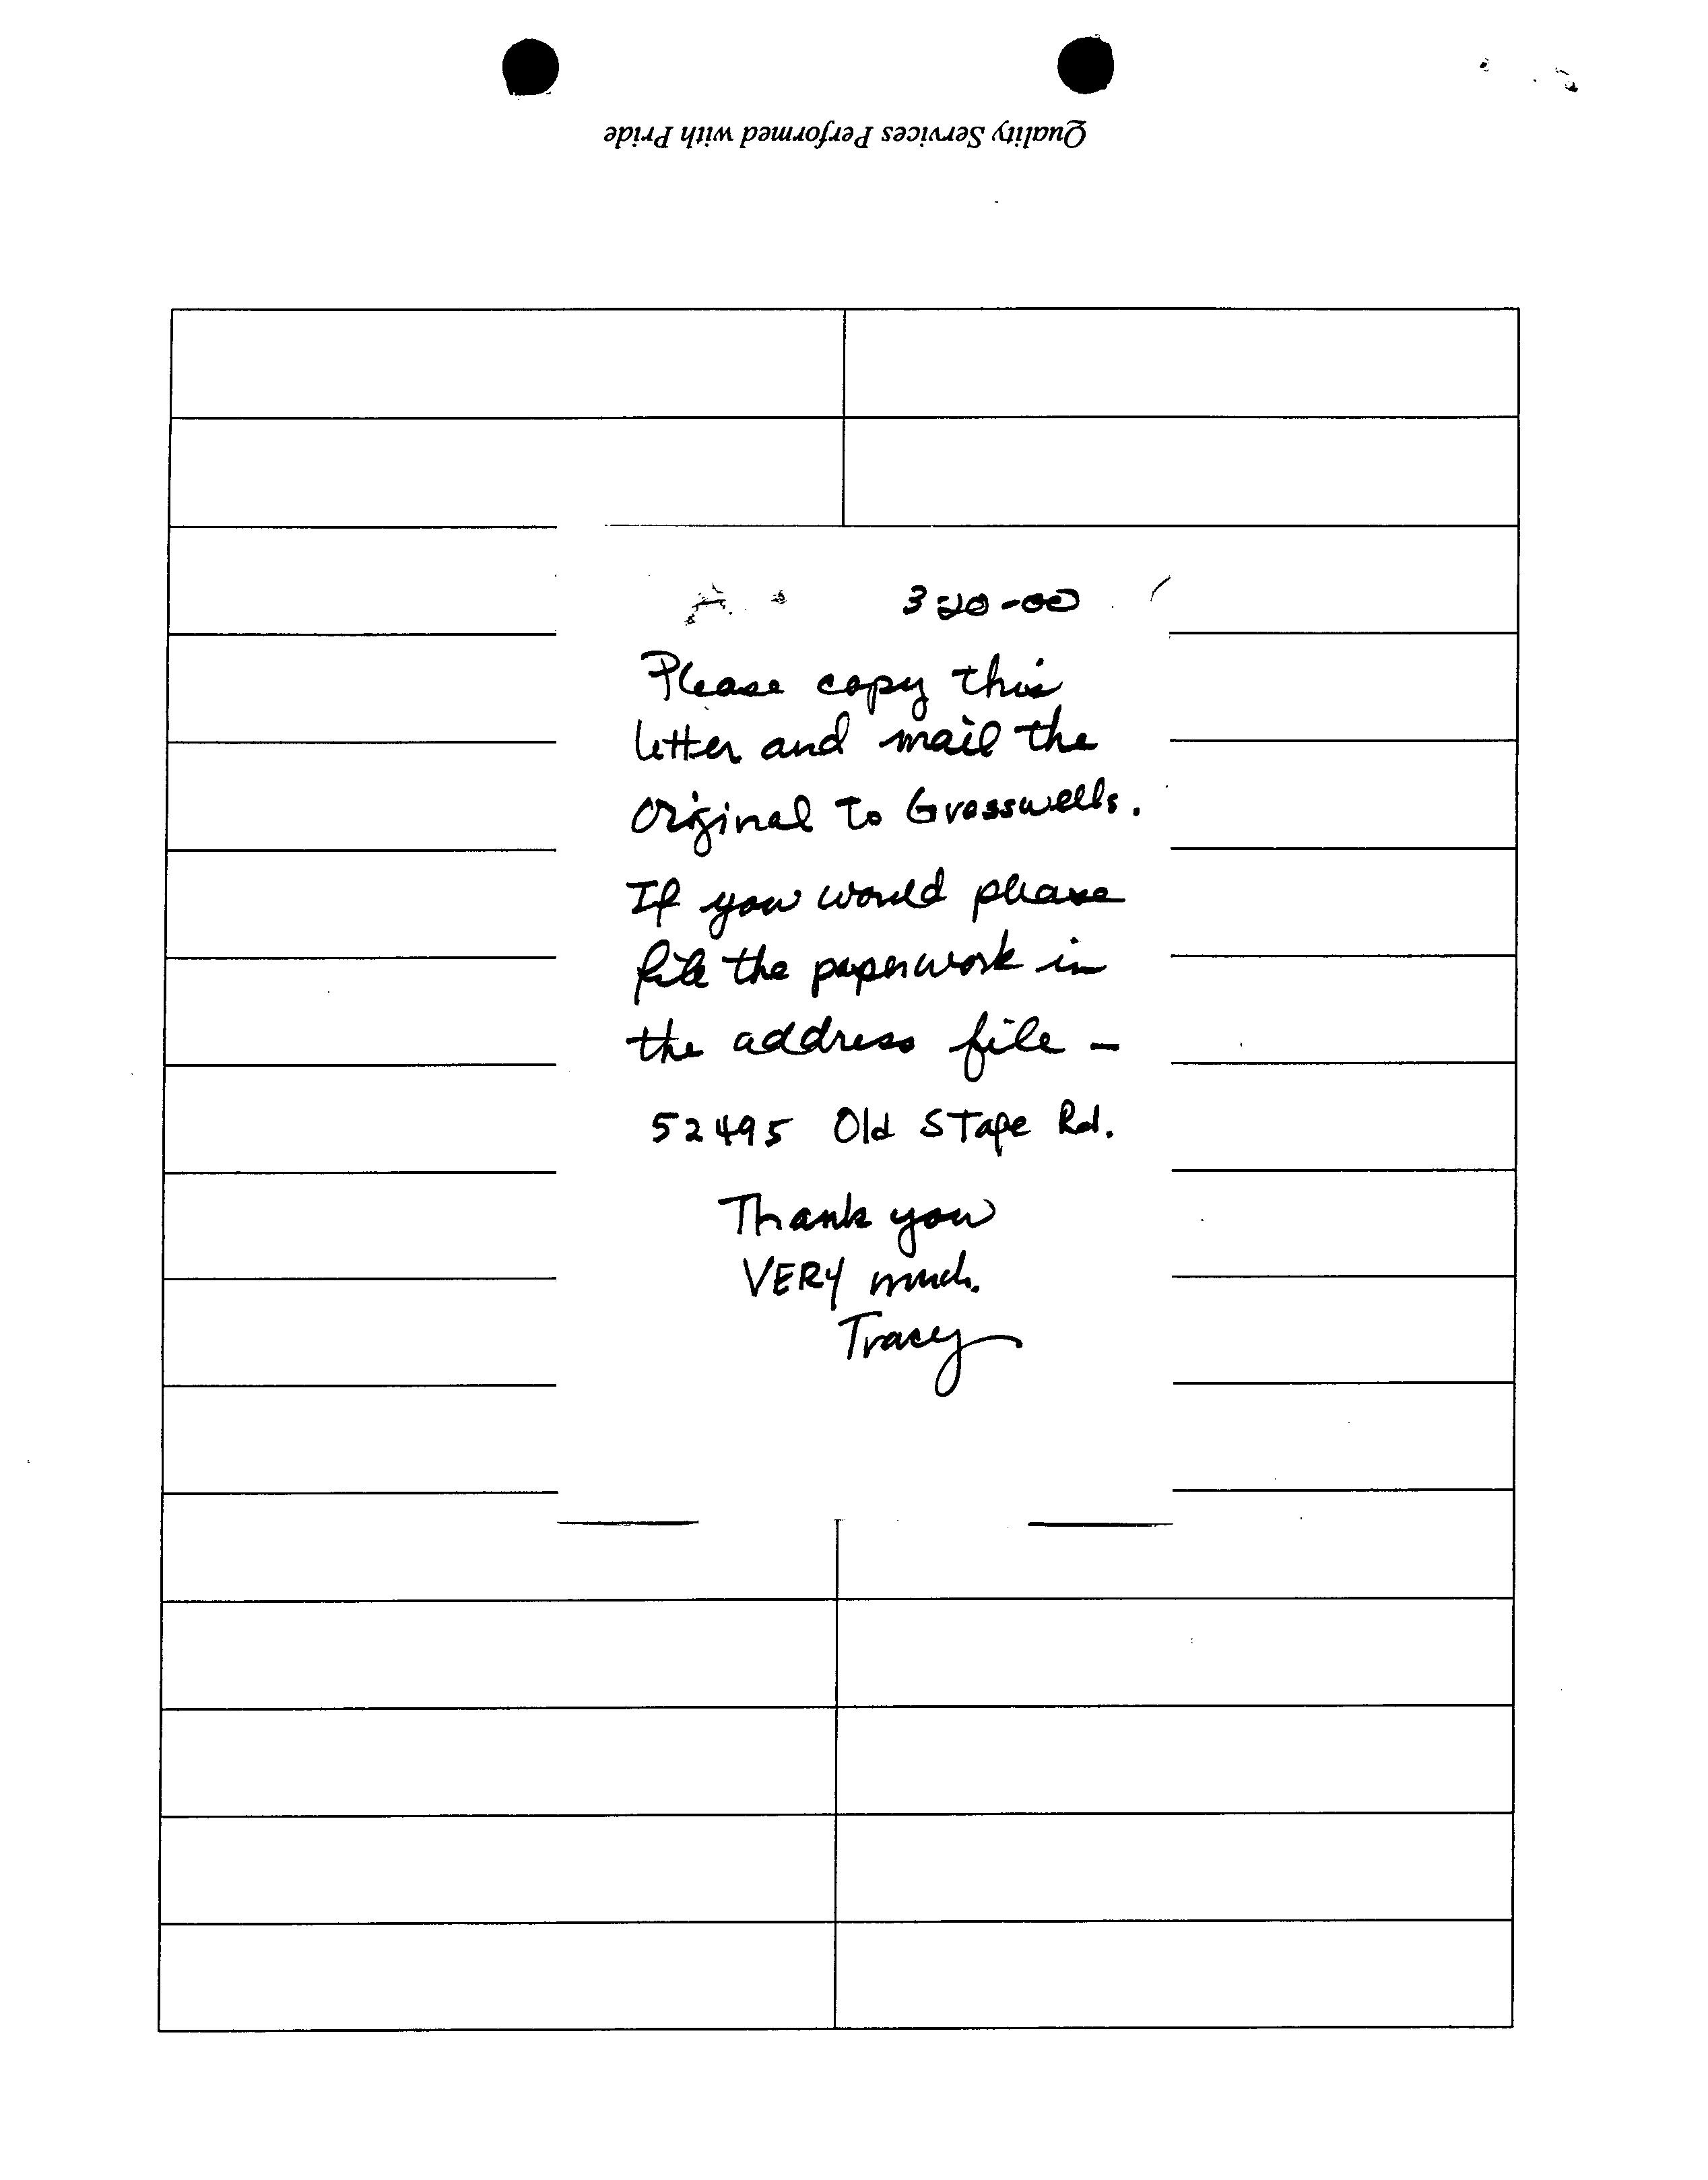 Quality Services Performed with Pride
3-20-00
Please copy this
letter and mail the
original to Grosswells.
If you would please
file the paperwork in
the address file -
52495 Old STape Rd.
Thank you
VERY much.
Tracy